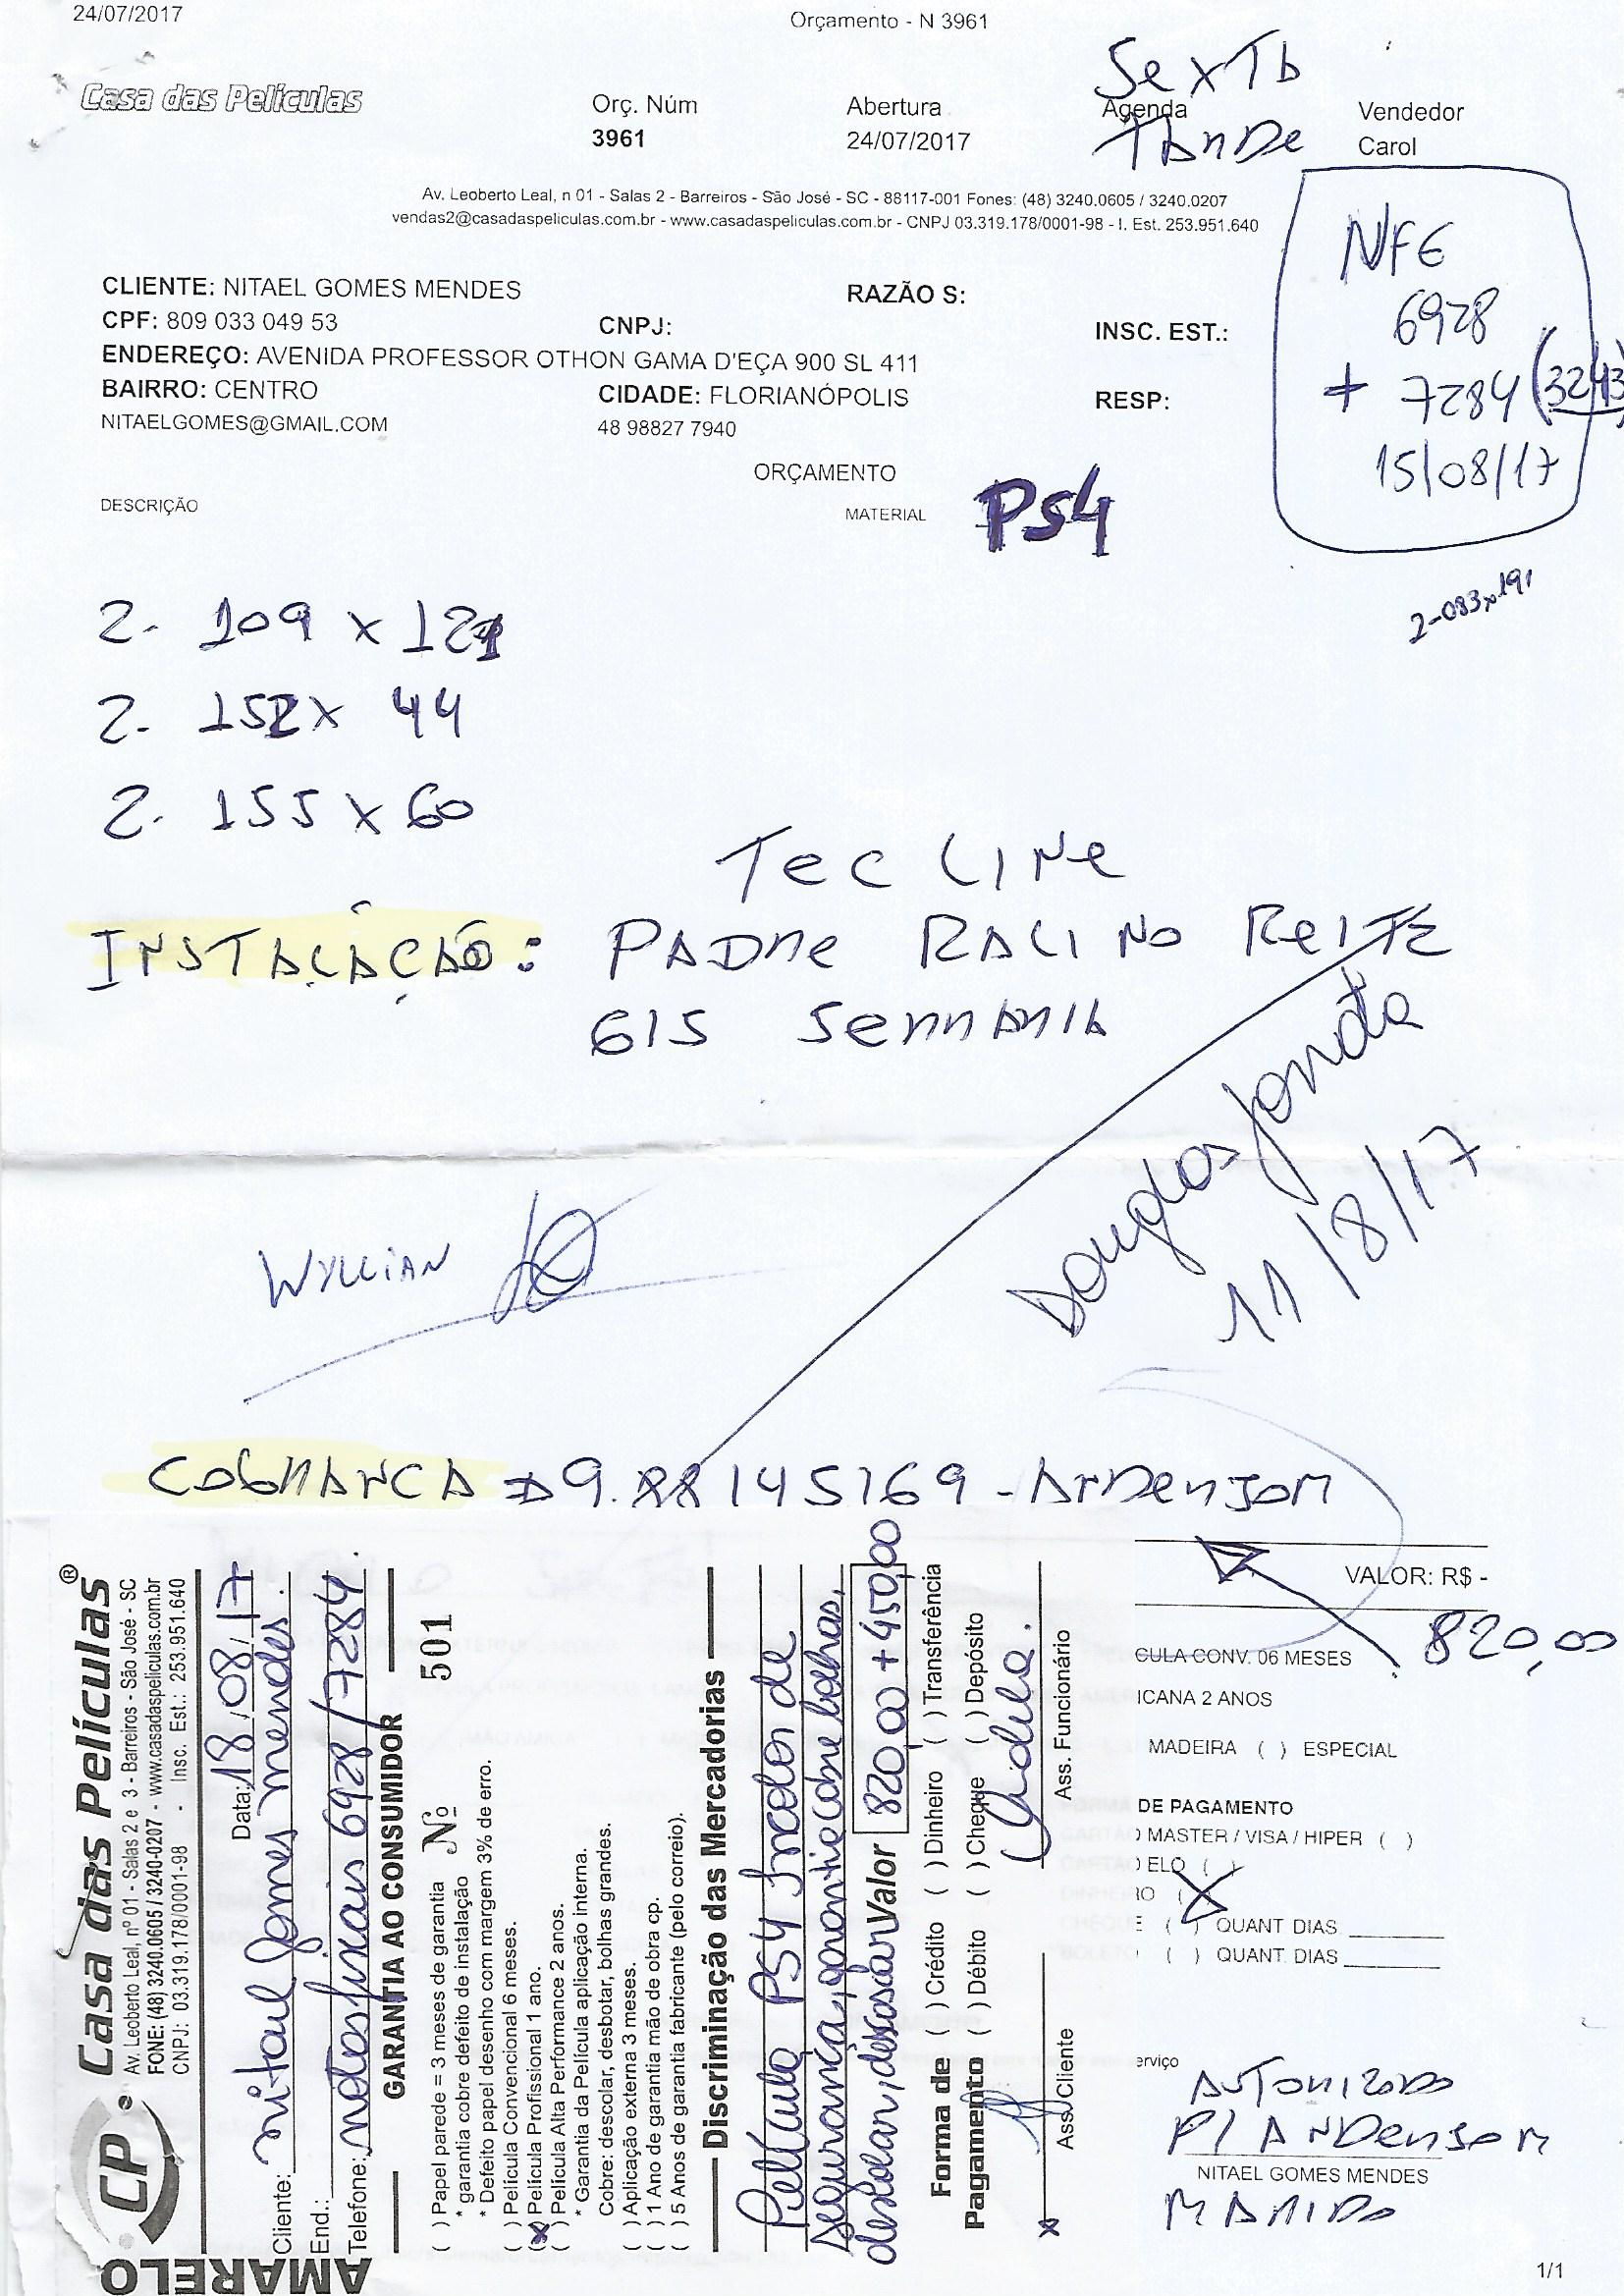 24/07/2017
Orçamento - N 3961
Casa das Películas
Orç. Núm
3961
Abertura
24/07/2017
SexTa
Agenda
TanDe
Vendedor
Carol
Av. Leoberto Leal, n 01 - Salas 2 - Barreiros - São José - SC - 88117-001 Fones: (48) 3240.0605 / 3240.0207
vendas2@casadaspeliculas.com.br - www.casadaspeliculas.com.br - CNPJ 03.319.178/0001-98 - I. Est. 253.951.640
NFE
6928
+ 7284 (3243)
15/08/17
CLIENTE: NITAEL GOMES MENDES
RAZÃO S:
CPF: 809 033 049 53
CNPJ:
INSC. EST.:
ENDEREÇO: AVENIDA PROFESSOR OTHON GAMA D'EÇA 900 SL 411
BAIRRO: CENTRO
CIDADE: FLORIANÓPOLIS
RESP:
NITAELGOMES@GMAIL.COM
48 98827 7940
ORÇAMENTO
DESCRIÇÃO
MATERIAL
PS4
2-083x191
2. 109 x 121
2. 152 x 44
2. 155 x 60
Tec Line
INSTALAÇÃO: PADRE
615 Serraria
Douglas
11/8/17
WYLLIAN
COBRANCA 9.88145169 - AnDenson
VALOR: R$ -
820,00
CULA CONV. 06 MESES
ICANA 2 ANOS
MADEIRA ( ) ESPECIAL
DE PAGAMENTO
O MASTER / VISA / HIPER ( )
O ELO ( )
RO (X)
E ( ) QUANT DIAS
( ) QUANT DIAS
erviço
AUTONIZADO
P/ ANDenson
NITAEL GOMES MENDES
MANIDO
1/1
AMARELO
CP
Casa das Películas ®
Av. Leoberto Leal, nº 01 - Salas 2 e 3 - Barreiros - São José - SC
FONE: (48) 3240.0605 / 3240-0207 - www.casadaspeliculas.com.br
CNPJ: 03.319.178/0001-98 - Insc. Est.: 253.951.640
Data: 18/08/17
Cliente: nitael gomes mendes.
End.:
Telefone: notas fixais 6928/7284.
GARANTIA AO CONSUMIDOR
( ) Papel parede = 3 meses de garantia
Nº 501
* garantia cobre defeito de instalação
* Defeito papel desenho com margem 3% de erro.
( ) Película Convencional 6 meses.
(x) Película Profissional 1 ano.
( ) Película Alta Performance 2 anos.
* Garantia da Película aplicação interna.
Cobre: descolar, desbotar, bolhas grandes.
( ) Aplicação externa 3 meses.
( ) 1 Ano de garantia mão de obra cp.
( ) 5 Anos de garantia fabricante (pelo correio).
Discriminação das Mercadorias
Pelicula PS4 Incolor de
segurança, garantia cobre bolhas,
Valor 820,00 + 450,00
Forma de Pagamento
( ) Crédito ( ) Dinheiro ( ) Transferência
( ) Débito ( ) Cheque ( ) Depósito
x
Ass. Cliente
Ass. Funcionário